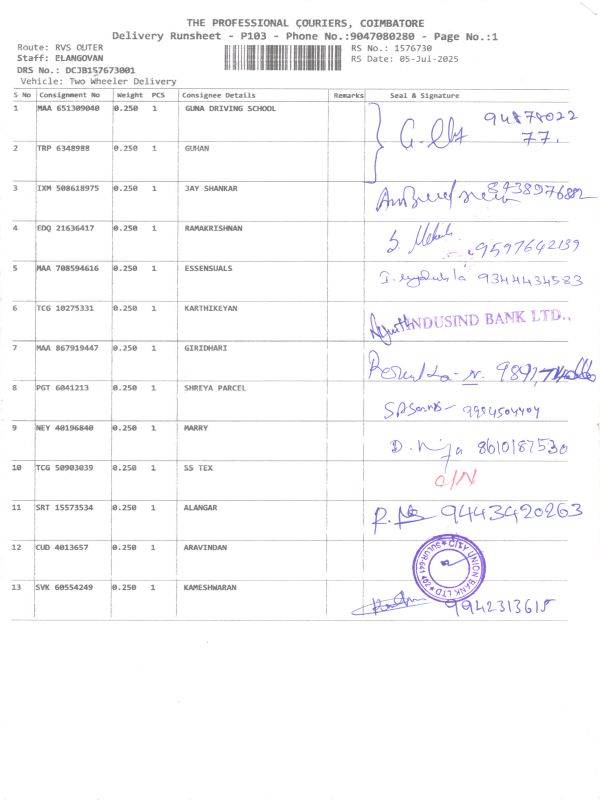 THE PROFESSIONAL COURIERS, COIMBATORE
Delivery Runsheet - P103 - Phone No.:9047080280 - Page No.:1
Route: RVS OUTER RS No.: 1576730
Staff: ELANGOVAN RS Date: 05-Jul-2025
DRS No.: DCJB157673001
Vehicle: Two Wheeler Delivery
S No Consignment No Weight PCS Consignee Details Remarks Seal & Signature
1 MAA 651309040 0.250 1 GUNA DRIVING SCHOOL 94878022
77.
2 TRP 6348988 0.250 1 GUHAN
3 IXM 508618975 0.250 1 JAY SHANKAR
4 EDQ 21636417 0.250 1 RAMAKRISHNAN 9597642139
5 MAA 708594616 0.250 1 ESSENSUALS 9344434583
6 TCG 10275331 0.250 1 KARTHIKEYAN INDUSIND BANK LTD.,
7 MAA 867919447 0.250 1 GIRIDHARI
8 PGT 6041213 0.250 1 SHREYA PARCEL 9984504404
9 NEY 40196840 0.250 1 MARRY 8610187530
10 TCG 50903039 0.250 1 SS TEX O/N
11 SRT 15573534 0.250 1 ALANGAR 9443420263
12 CUD 4013657 0.250 1 ARAVINDAN CITY UNION BANK LTD
13 SVK 60554249 0.250 1 KAMESHWARAN 9942313615